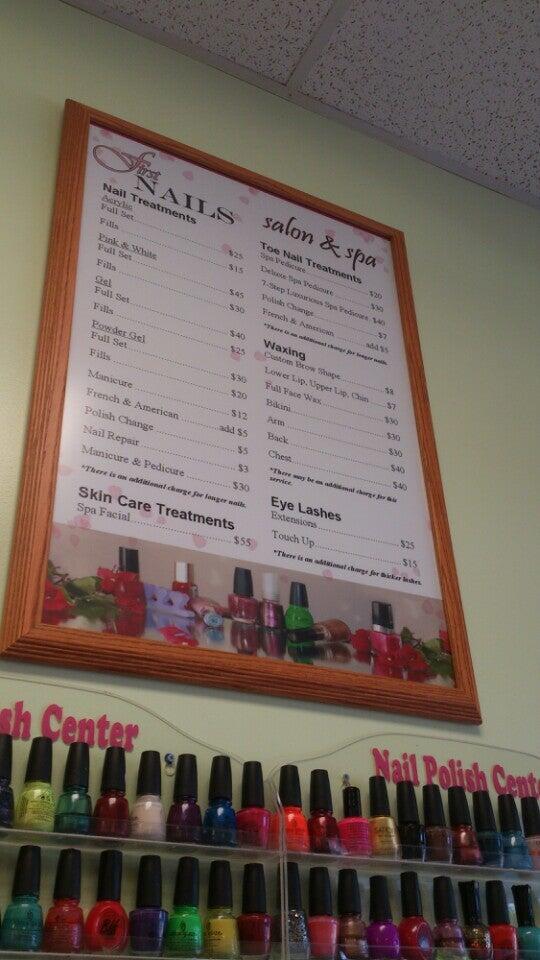 First
NAILS
salon & spa
Nail Treatments
Acrylic
Full Set............$25
Fills............$15
Pink & White
Full Set............$45
Fills............$30
Gel
Full Set............$40
Fills............$25
Powder Gel
Full Set............$30
Fills............$20
Manicure............$12
French & American............add $5
Polish Change............$5
Nail Repair............$3
Manicure & Pedicure............$30
*There is an additional charge for longer nails.
Skin Care Treatments
Spa Facial............$55
Toe Nail Treatments
Spa Pedicure............$20
Deluxe Spa Pedicure............$30
7-Step Luxurious Spa Pedicure $40
Polish Change............$7
French & American............add $5
*There is an additional charge for longer nails.
Waxing
Custom Brow Shape............$8
Lower Lip, Upper Lip, Chin............$7
Full Face Wax............$30
Bikini............$30
Arm............$30
Back............$40
Chest............$40
*There may be an additional charge for this
service.
Eye Lashes
Extensions............$25
Touch Up............$15
*There is an additional charge for thicker lashes.
sh Center
Nail Polish Cente